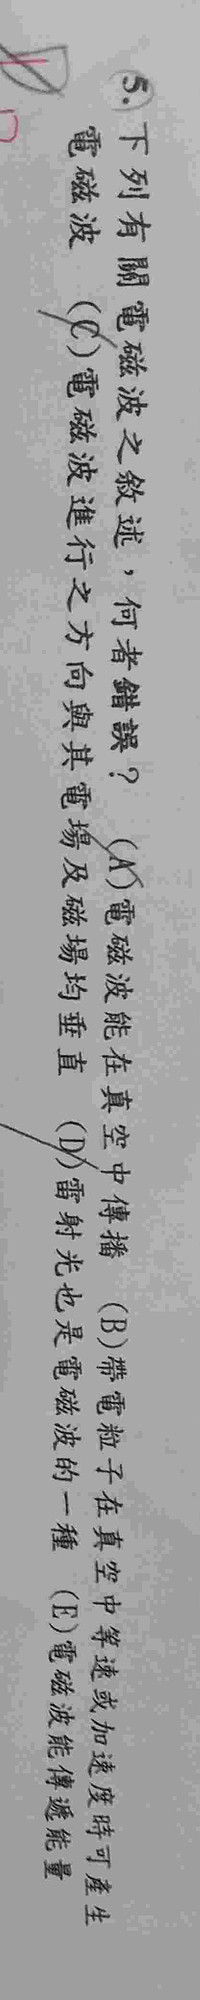 5. 下列有關電磁波之敘述，何者錯誤？ (A)電磁波能在真空中傳播 (B)帶電粒子在真空中等速或加速度時可產生
電磁波 (C)電磁波進行之方向與其電場及磁場均垂直 (D)雷射光也是電磁波的一種 (E)電磁波能傳遞能量